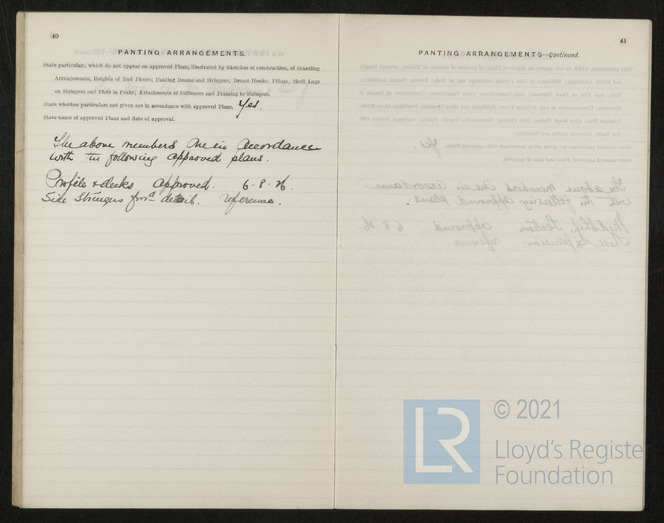 40
PANTING ARRANGEMENTS.
State particulars, which do not appear on approved Plans, illustrated by Sketches of construction, of Scantling
Arrangements, Heights of End Floors; Panting Beams and Stringers; Breast Hooks; Pillars, Shell Lugs
on Stringers and Flats in Peaks; Attachments of Stiffeners and Framing to Stringers.
State whether particulars not given are in accordance with approved Plans. Yes.
State name of approved Plans and date of approval.
The above members are in accordance
with the following approved plans.
Profile & decks approved. 6-8-26.
Side Stringers for'd detail. reference.
41
PANTING ARRANGEMENTS—Continued.
LR
© 2021
Lloyd's Register
Foundation